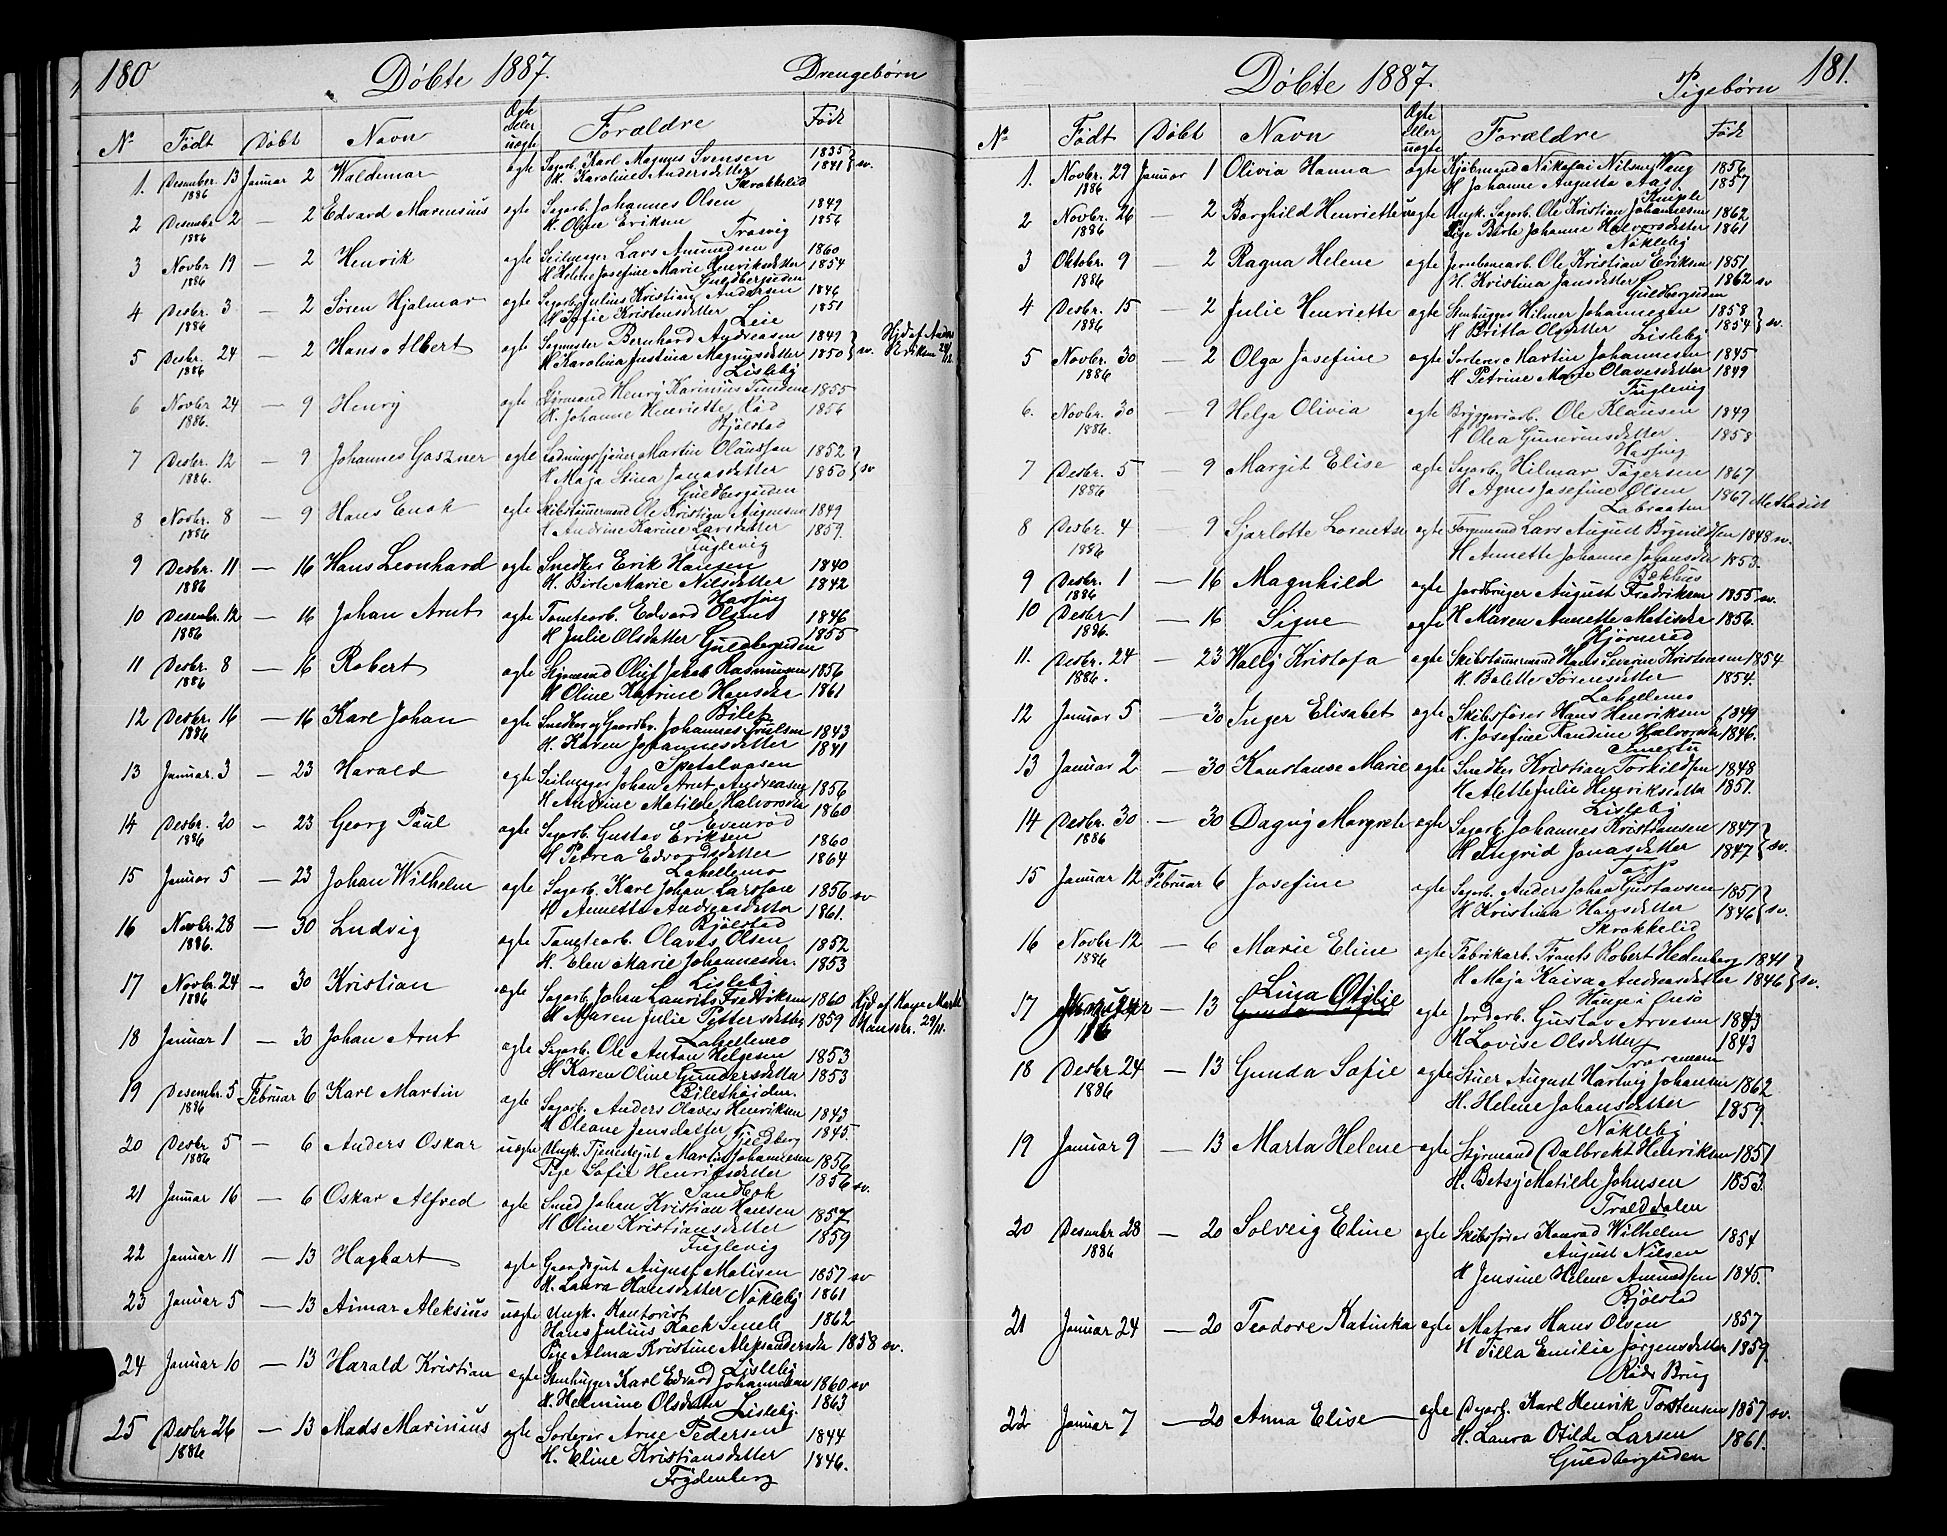 180 Døbte 1887. Drengebørn
No Født Døbt Navn Ægte eller uægte Forældre Født
1. Desember 13 Januar 2 Waldemar ægte Sagarb. Karl Magnus Svensen 1835
1886 H. Karoline Andersdatter 1841 } sv.
Skrokkelid
2 Desembr 2 — 2 Edvard Marensius ægte Sagarb. Johannes Olsen 1849
1886 H. Oline Eriksen 1856
Trosvig
3 Novbr 19 — 2 Henrik ægte Seilmager Lars Amundsen 1860
1886 H Helene Josefine Marie Henriksdatter 1854
Guldbergsiden
4 Desbr. 3 — 2 Søren Hjalmar ægte Sagarb. Julius Kristian Andersen 1846
1886 H Sofie Kristensdatter 1851
Leie
5 Desbr. 24 — 2 Hans Albert ægte Sagmester Bernhard Andreasen 1849
1886 H Karolina Justina Magnusdatter 1850 } sv.
Lisleby
6 Novbr 24 — 9 Henry ægte Styrmand Henry Karinius 1855
1886. H. Johanne Henriette Rød 1856
Bjølstad
7 Desbr. 12 — 9 Johannes Gaszner ægte Martin Olaussen 1852
1886. H Maja Stina Jonasdatter 1850 } sv
Guldbergsiden
8 Novbr. 8 — 9 Hans Enok ægte Skibstømmermand Ole Kristian 1849
1886 H Andrine Karine Larsdatter 1859.
Fuglevig
9 Desbr. 11 — 16 Hans Leonhard ægte Snedker Erik Hansen 1840
1886 H. Birte Marie Nilsdatter 1842
Hassing
10 Desembr. 12 — 16 Johan Arnt ægte Tomtearb. Edvard Olsen 1846
1886 H Julie Olsdatter 1855
Guldbergsiden
11 Desbr. 8 — 16 Robert ægte Styrmand Oluf Jakob Rasmussen 1856
1886 H Oline Katrine Hansdtr 1861
Bilet
12 Desbr. 16 — 16 Karl Johan ægte Snedker og Gaardbr. Johannes 1843
1886 H. Karen Johannesdatter 1841
Spetalvasen
13 Januar. 3 — 23 Harald ægte Seilmager Johan Arnt Andreasen 1856
H Andrine Matilde Halvorsdtr 1860
Evenrød
14 Desbr. 20 — 23 Georg Paul ægte Sagarb. Gustav Eriksen 1860
1886 H Petrea Edvardsdatter 1864
Lahellemo
15 Januar 5 — 23 Johan Wilhelm ægte Sagarb. Karl Johan Larsson 1856 sv
H Annette Andreasdatter 1861.
Bjølstad
16 Novbr. 28 — 30 Ludvig ægte Tomtearb. Olavis Olsen 1852
1886. H. Elen Marie Johannesdtr. 1853
Lisleby
17 Novbr. 24 — 30 Kristian ægte Sagarb. Johan Laurits Fredriksen 1860
1886 H Maren Julie Pettersdatter 1859
Lahellemo
18 Januar 1 — 30 Johan Arnt ægte Sagarb. Ole Anton Helgesen 1853
H Karen Oline Gundersdatter 1853
Bilethøiden.
19 Desembr. 5 Februar 6 Karl Martin ægte Sagarb. Anders Olaves Henriksen 1843
1886 H Oleane Jensdatter 1845.
Fjeldberg
20 Desbr 5 — 6 Anders Oskar uægte Ungk. Tjenestegut Martin Johannesen 1856
1886 Pige Sofie Henriksdatter 1856 sv.
Sandbæk
21 Januar 16 — 6 Oskar Alfred ægte Smed Johan Kristian Hansen 1857
H Oline Kristiansdatter 1859
Fuglevig
22 Januar 11 — 13 Hagbart ægte Gaardsgut August Matisen 1857 sv
H. Laura Hansdatter 1861
Nøkleby
23 Januar 5 — 13 Aimar Aleksius uægte Ungk. Kontorist
Hans Julius Koch Smelt 1862
Pige Alma Kristine Aleksandersdtr 1858 sv.
Lisleby
24 Januar 10 — 13 Harald Kristian ægte Stenhugger Karl Edvard Johannesen 1860 sv
H. Helmine Olsdatter 1863
Lisleby.
25 Desbr 26 — 13 Mads Marinius ægte Sorterer Arne Pedersen 1844
1886 H. Eline Kristiansdatter 1846.
Frydenberg
Døbte 1887. Pigebørn 181.
No Født Døbt Navn Ægte eller uægte Forældre Født
1. Novbr. 29 Januar 1 Olivia Hanna ægte Kjøbmand Nikolai Nilsen Weug 1856
1886 H Johanne Augusta Aas 1857
Simple
2 Novbr. 26 — 2 Borghild Henriette uægte Ungk. Sagarb. Ole Kristian Johannesen 1862
1886 Pige Birte Johanne Halvorsdatter 1861
Nøkleby
3 Oktobr. 9 — 2 Ragna Helene ægte Jernbanearb. Ole Kristian Eriksen 1851
1886 H. Kristina Jansdatter 1862 sv
Guldbergsiden
4 Desbr. 15 — 2 Julie Henriette ægte Stenhugger Hilmer Johannesen 1858
1886 H Britta Olsdatter 1854 } sv.
Lisleby
5 Novbr. 30 — 2 Olga Josefine ægte Sorterer Martin Johannesen 1845
1886 H Petrine Marie Olavesdatter 1849
Fuglevig
6. Novbr. 30 — 9 Helga Olivia ægte Bryggeriarb. Ole Klausen 1849
1886. H Olea Gunerensdatter 1858
Hassing
7 Desbr. 5 — 9 Margit Elise ægte Sagarb. Hilmar Tøgersen 1867
1886 H Agnes Josefine Olsen 1867 Methodist
Labraaten
8 Desbr. 4 — 9 Sjarlotte Lorentse ægte Formand Lars August Brynildsen 1848 sv.
1886 H Annette Johanne Johansdtr 1853.
Bakhus
9 Desbr. 1 — 16 Magnhild ægte Jordbruger August Fredriksen 1855 sv.
1886
10 Desbr 1 — 16 Signe ægte H Maren Annette Matisdtr 1856.
1886. Hjørnerød
11. Desbr. 24 — 23 Wally Kristofa ægte Skibstømmermand Hans Severin Kristensen 1854
1886. H. Bolette Sørensdatter 1854.
Lahellemo
12 Januar 5 — 30 Inger Elisabet ægte Skibsfører Hans Henriksen 1849
H. Josefine Randine Halvorsdtr 1846.
Smertu
13 Januar 2 — 30 Konstanse Marie ægte Snedker Kristian Torkildsen 1848
H Alette Julie Henriksdatter 1851.
Lisleby
14 Desbr. 30 — 30 Dagny Margrete ægte Sagarb. Johannes Kristiansen 1847
1886 H Ingrid Jonasdatter 1847 } sv.
Torp
15 Januar 12 Februar 6 Josefine ægte Sagarb. Anders Johan Gustavsen 1851
H Kristina Hansdatter 1846 } sv.
Skrokkelid
16 Novbr 12 — 6 Marie Eline ægte Fabrikarb. Frants Robert Hedenberg 1841
1886 H Maja Kaisa Andreasdatter 1846 } sv.
Hauge i Onsø
17 Januar 16 — 13 Lina Otilie ægte Jorderb. Gustav Arvesen 1843
H Lovise Olsdatter 1843
Traramoen
18 Desbr 24 — 13 Gunda Sofie ægte Stuer August Hartvig Johansen 1862
1886 H. Helene Johansdatter 1859.
Nøkleby
19 Januar 9 — 13 Marta Helene ægte Styrmand Dalbrekt Henriksen 1851
H. Betsy Matilde Johnsen 1853.
Traldalen
20 Desembr 28 — 20 Solveig Eline ægte Skibsfører Konrad Wilhelm
1886 August Nilsen 1854
H Jensine Helene Amundsen 1845.
Bjølstad
21 Januar 24 — 20 Teodore Katinka ægte Matros Hans Olsen 1857
H Tilla Emilie Jørgensdatter 1859.
Røds Brug
22 Januar 7 — 20 Anna Elise ægte Dagarb. Karl Henrik Torstensen 1857 sv.
H. Laura Otilde Larsen 1861.
Guldbergsiden